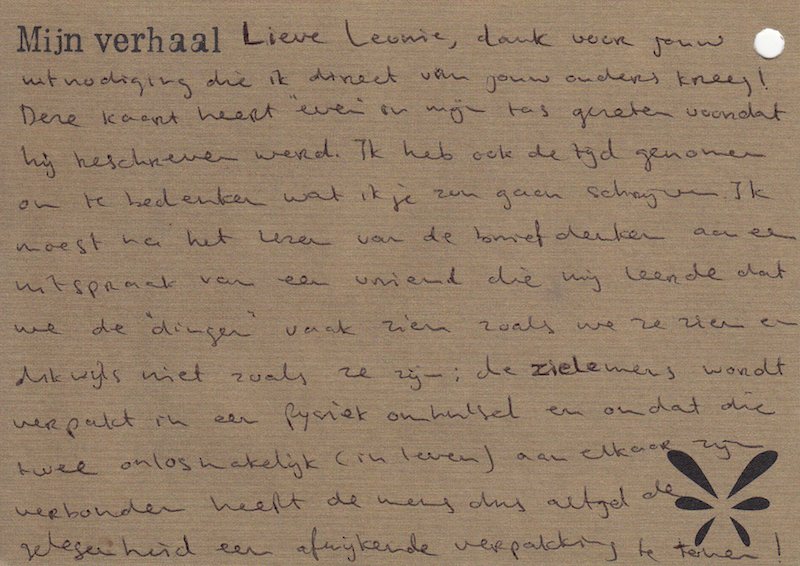 Mijn verhaal Lieve Leonie, dank voor jouw
uitnodiging die ik direct van jouw ouders kreeg!
Deze kaart heeft "even" in mijn tas gezeten voordat
hij beschreven werd. Ik heb ook de tijd genomen
om te bedenken wat ik je zou gaan schrijven. Ik
moest na het lezen van de brief denken aan een
uitspraak van een vriend die mij leerde dat
we de "dingen" vaak zien zoals we ze zien en
dikwijls niet zoals ze zijn; de zielemens wordt
verpakt in een fysiek omhulsel en omdat die
twee onlosmakelijk (in leven) aan elkaar zijn
verbonden heeft de mens dus altijd de
gelegenheid een afwijkende verpakking te tonen!